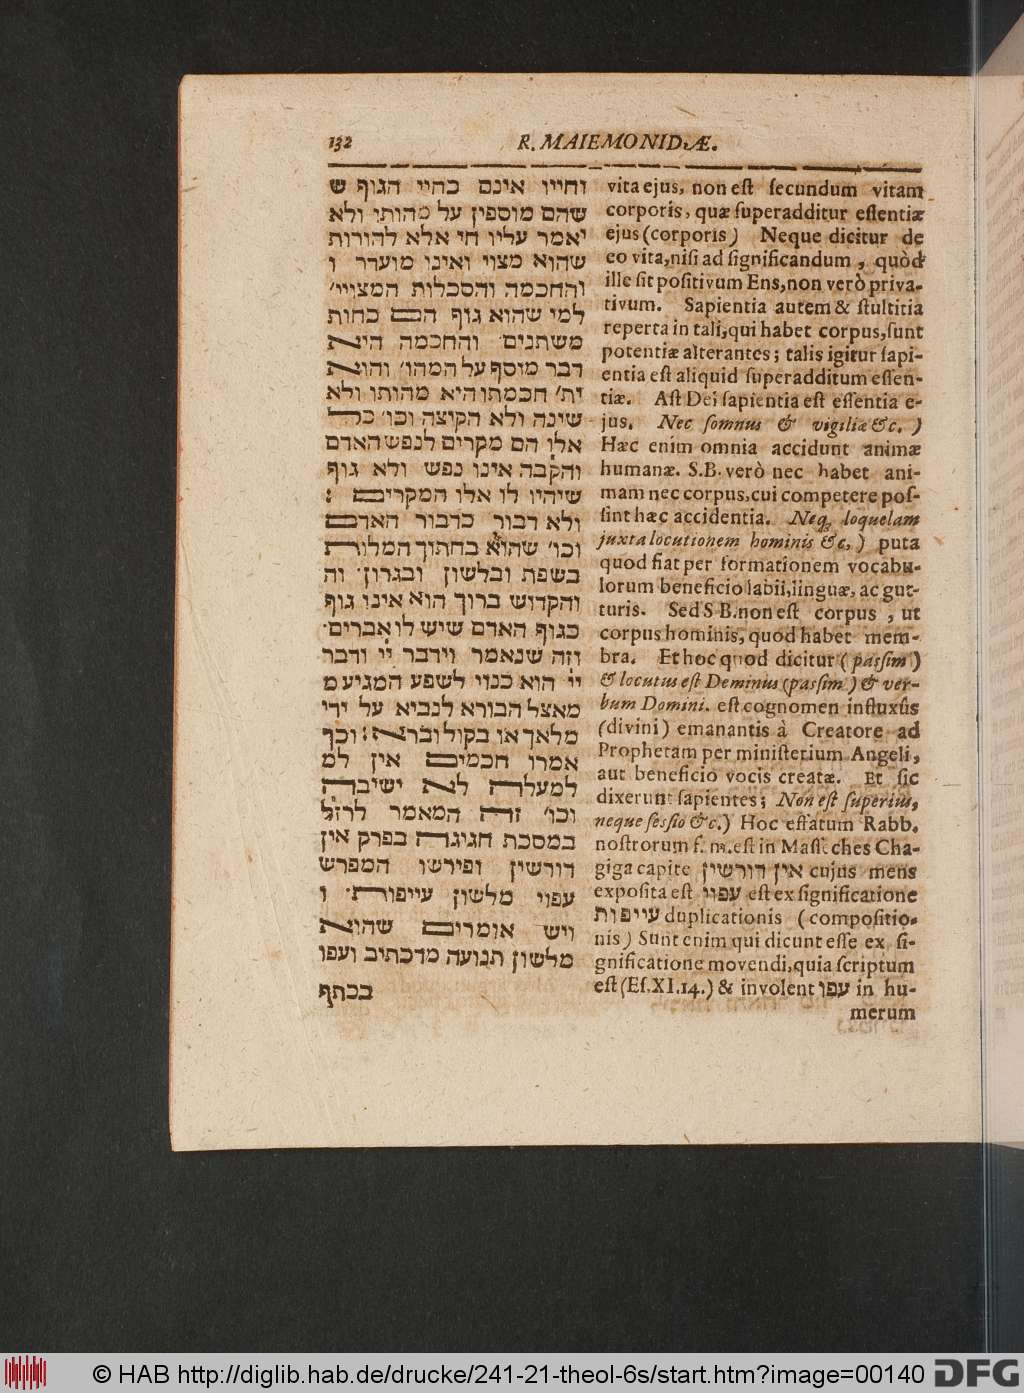 132 R. MAIEMONIDÆ.
וחייו אינם כחיי הגוף ש
שהם מוספין על מהותו ולא
יאמר עליו חי אלא להורות
שהוא מצוי ואינו מועדר ו
והחכמה והסכלות המצויי׳
למי שהוא גוף הם כחות
משתנים והחכמה היא
דבר מוסף על המהו׳ והוא
ית׳ חכמתו היא מהותו ולא
שינה ולא הקיצה וכו׳ כל
אלו הם מקרים לנפש האדם
והקבה אינו נפש ולא גוף
שיהיו לו אלו המקרים :
ולא דבור כדבור האדם
וכו׳ שהוא בחתוך המלות
בשפת ובלשון ובגרון׳ וה
והקדוש ברוך הוא אינו גוף
כגוף האדם שיש לו אברים׳
וזה שנאמר וידבר יי ודבר
יי׳ הוא כנוי לשפע המגיע מ
מאצל הבורא לנביא על ידי
מלאך או בקול נברא: וכך
אמרו חכמים אין למ
למעלה לא ישיבה
וכו׳ זה המאמר לרזל
במסכת חגיגה בפרק אין
דורשין ופירשו המפרש
עפוי מלשון עייפות׳ ו
ויש אומרים שהוא
מלשון תנועה מדכתיב ועפו
בכתף
vita ejus, non est secundum vitam
corporis, quæ superadditur essentiæ
ejus (corporis) Neque dicitur de
eo vita, nisi ad significandum, quòd
ille sit positivum Ens, non verò priva-
tivum. Sapientia autem & stultitia
reperta in tali, qui habet corpus, sunt
potentiæ alterantes; talis igitur sapi-
entia est aliquid superadditum essen-
tiæ. Ast Dei sapientia est essentia e-
jus. Nec somnus & vigiliæ &c.)
Hæc enim omnia accidunt animæ
humanæ. S.B. verò nec habet ani-
mam nec corpus, cui competere pos-
sint hæc accidentia. Neq; loquelam
juxta locutionem hominis &c.) puta
quod fiat per formationem vocabu-
lorum beneficio labii, linguæ, ac gut-
turis. Sed S.B. non est corpus, ut
corpus hominis, quod habet mem-
bra. Et hoc quod dicitur (passim)
& locutus est Dominus (passim) & ver-
bum Domini. est cognomen influxûs
(divini) emanantis à Creatore ad
Prophetam per ministerium Angeli,
aut beneficio vocis creatæ. Et sic
dixerunt sapientes; Non est superius,
neque sessio &c.) Hoc effatum Rabb.
nostrorum f. m. est in Massèches Cha-
giga capite אין דורשין cujus mens
exposita est עפוי est ex significatione
עייפות duplicationis (compositio-
nis) Sunt enim qui dicunt esse ex si-
gnificatione movendi, quia scriptum
est (Es. XI. 14.) & involent עפו in hu-
merum
© HAB http://diglib.hab.de/drucke/241-21-theol-6s/start.htm?image=00140 DFG